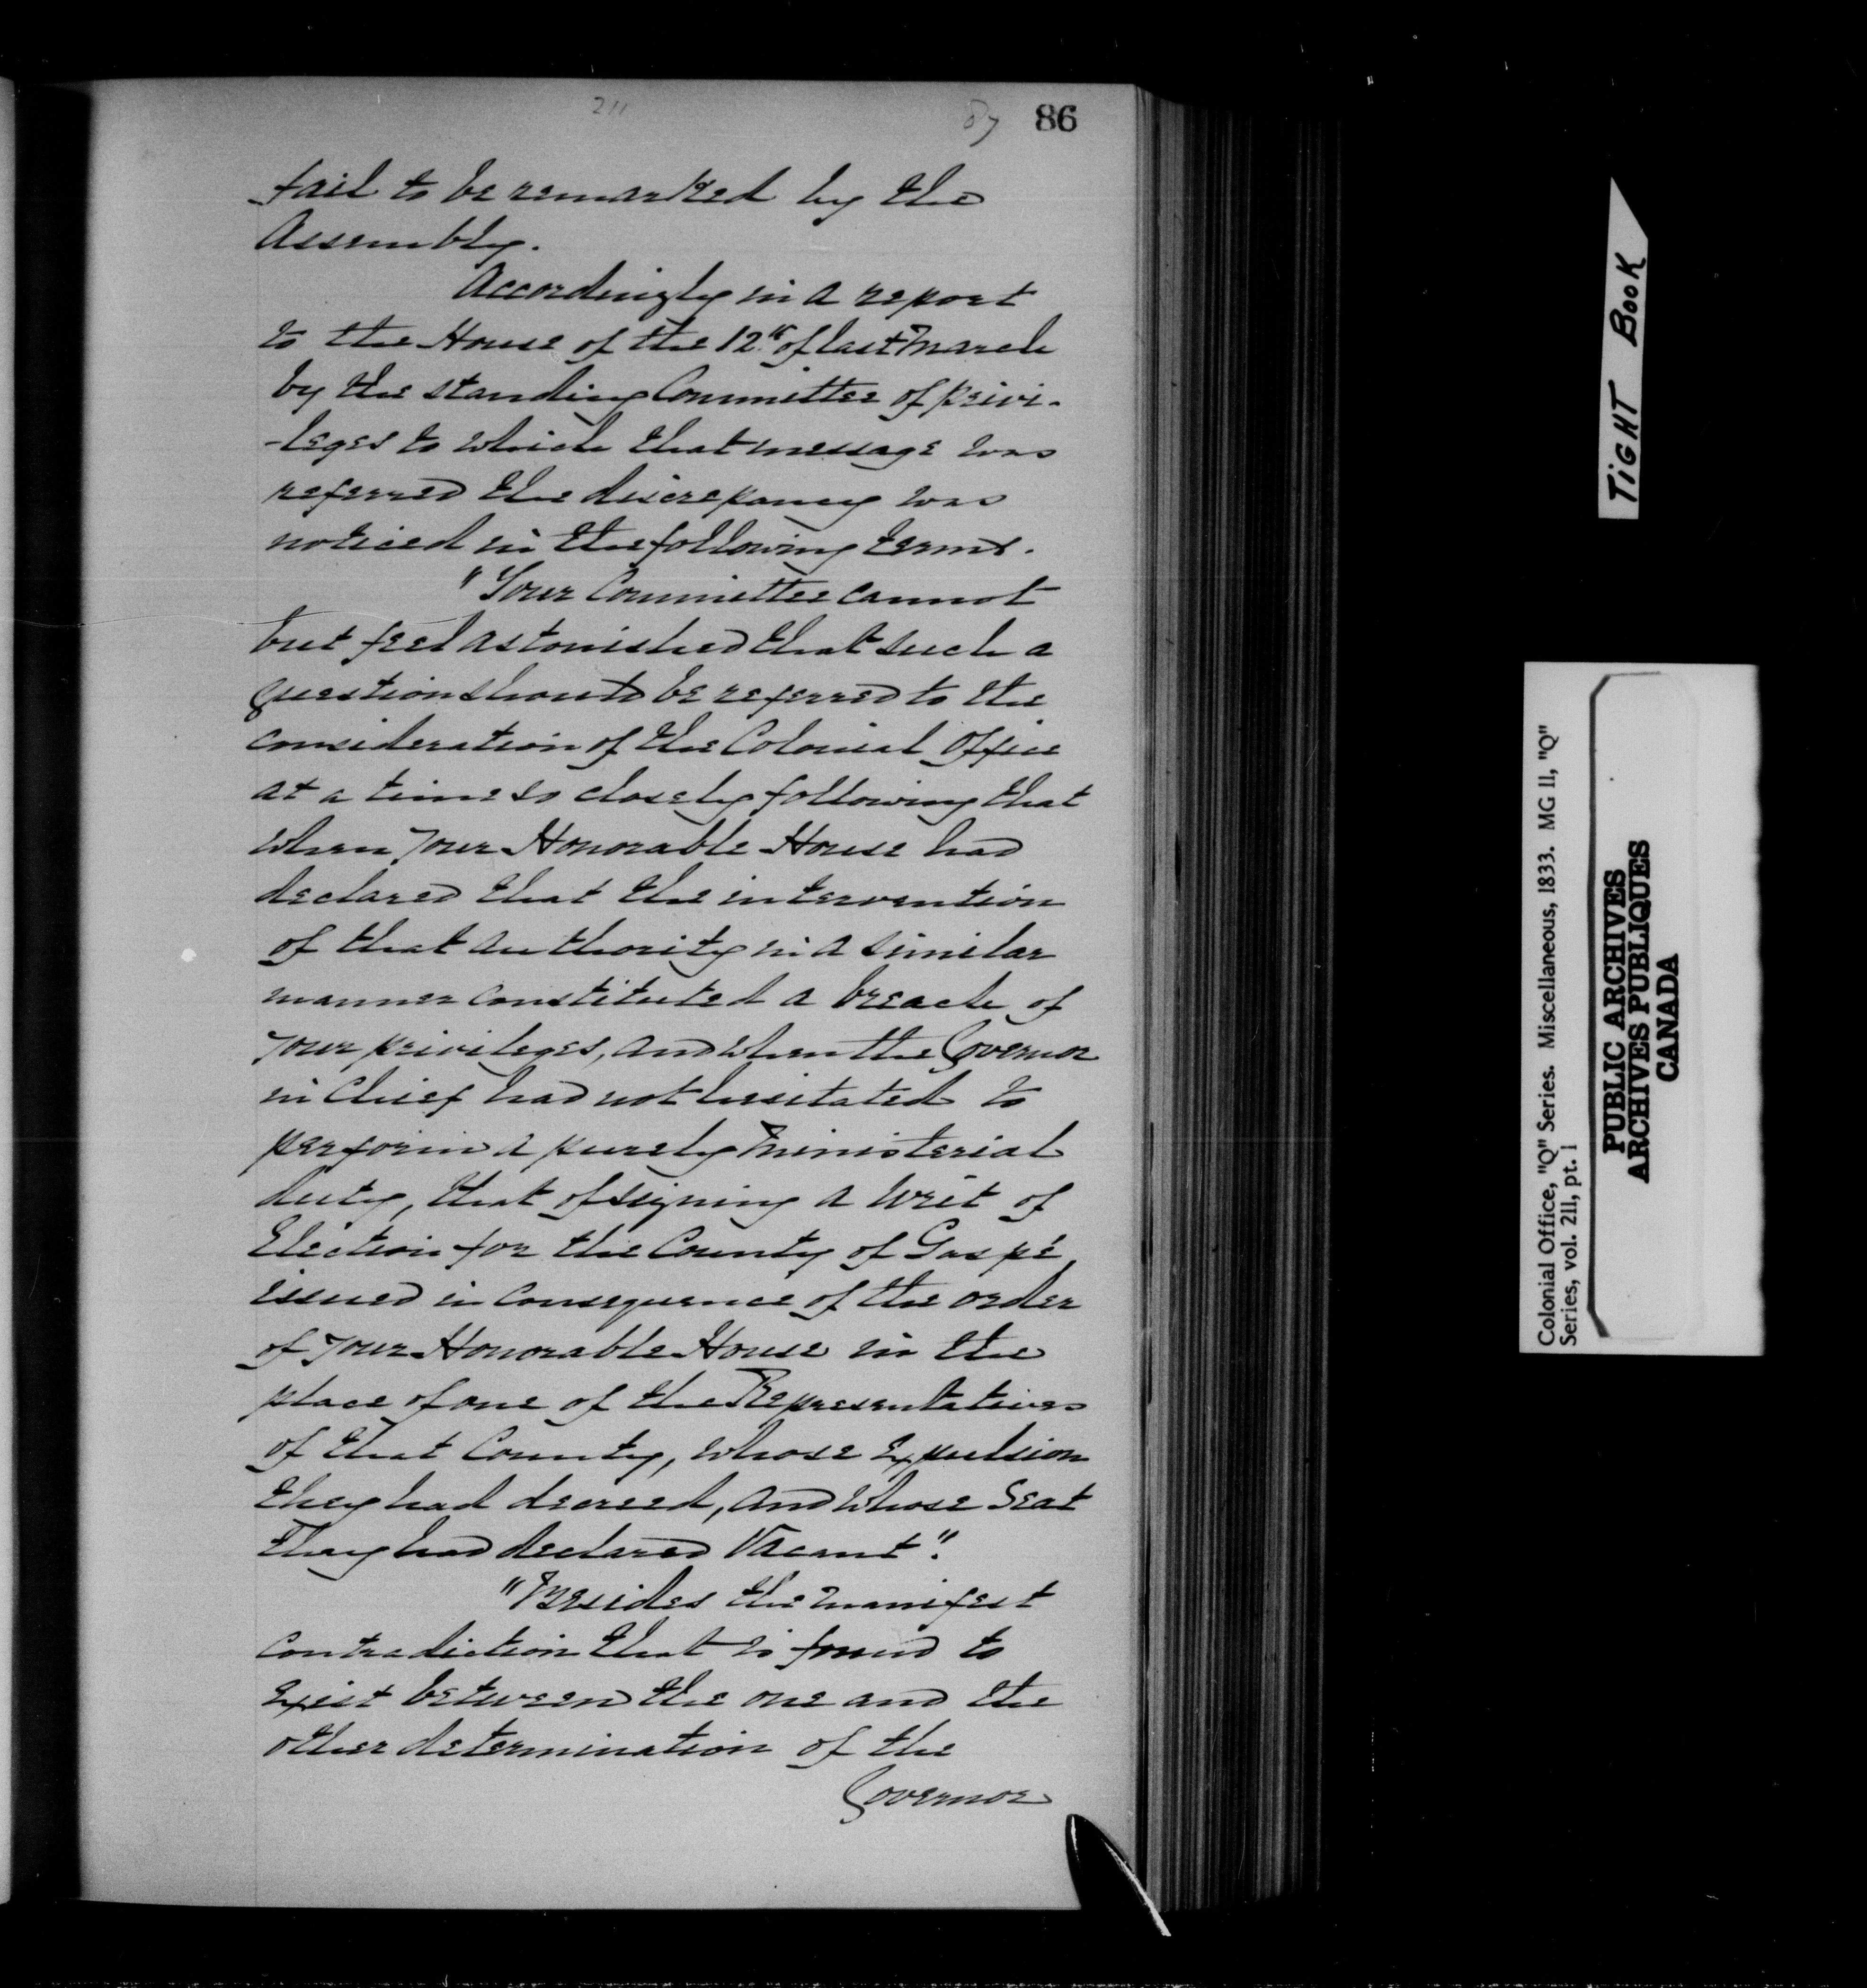 211
87 86
fail to be remarked by the
Assembly.
Accordingly in a report
to the House of the 12th of last March
by the standing Committee of privi-
-leges to which that message was
referred the discrepancy was
noticed in the following terms.
"Your Committee cannot
but feel astonished that such a
question should be referred to the
consideration of the Colonial Office
at a time so closely following that
when your Honorable House had
declared that the intervention
of that authority in a similar
manner constituted a breach of
your privileges, and when the Governor
in Chief had not hesitated to
perform a purely ministerial
duty, that of signing a writ of
Election for the County of Gaspé,
issued in consequence of the order
of your Honorable House in the
place of one of the Representatives
of that County, whose Expulsion
they had decreed, and whose Seat
they had declared Vacant".
"Besides the manifest
contradiction that is found to
Exist between the one and the
other determination of the
Governor
TIGHT BOOK
Colonial Office, "Q" Series. Miscellaneous, 1833. MG 11, "Q"
Series, vol. 211, pt. 1
PUBLIC ARCHIVES
ARCHIVES PUBLIQUES
CANADA